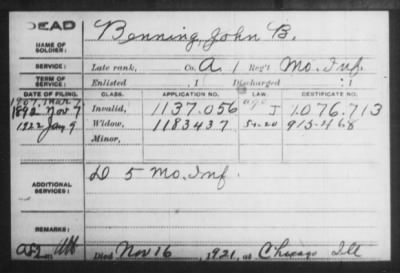 DEAD
NAME OF SOLDIER: Benning, John B.
SERVICE: Late rank, Co. A. 1 Reg't Mo. Inf.
TERM OF SERVICE: Enlisted , 1 Discharged , 1
DATE OF FILING. CLASS. APPLICATION NO. LAW. CERTIFICATE NO.
1907, Mar 7
1892 Nov 7 Invalid, 1137.056 age J 1.076.713
1922 Jan 9 Widow, 1183437 5-1-20 915468
Minor,
ADDITIONAL SERVICES: D 5 Mo. Inf.
REMARKS:
Died Nov 16, 1921, at Chicago Ill